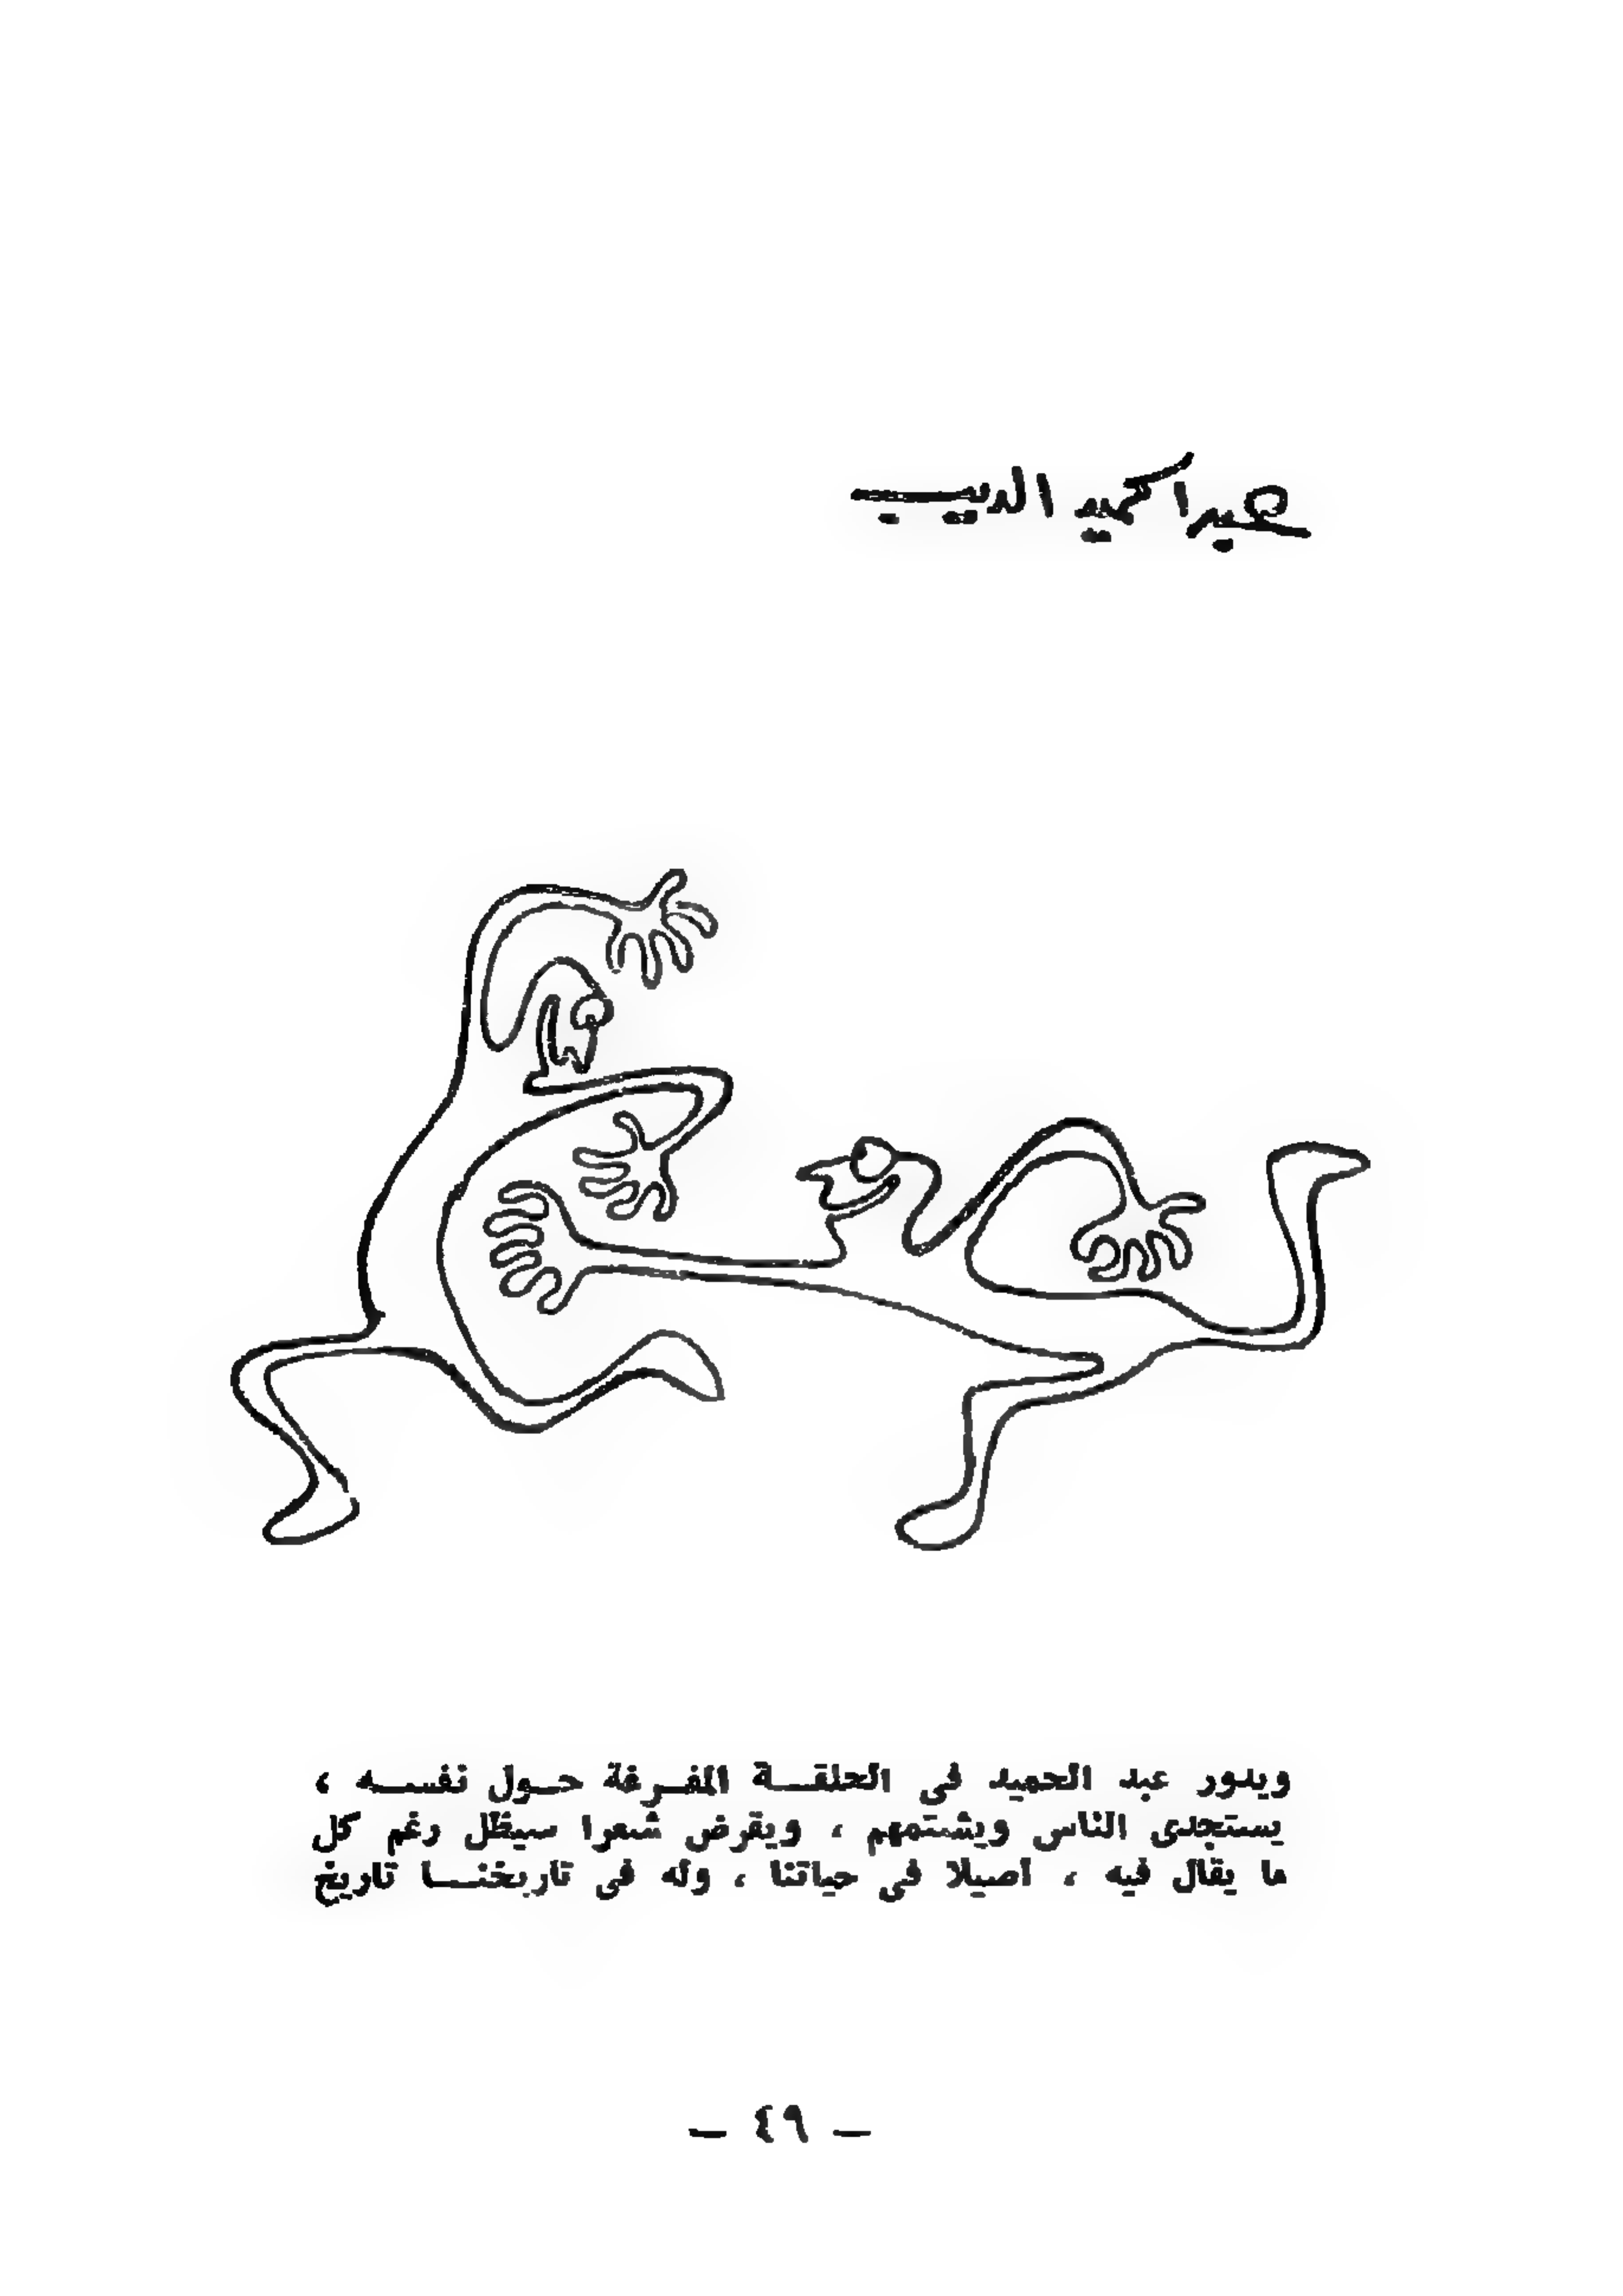 عبد الحميد الديب
ويدور عبد الحميد فى الحلقــة المفـرغة حـول نفســه ،
يستجدى الناس ويشتمهم ، ويقرض شعرا سيظل رغم كل
ما يقال فيه ، أصيلا فى حياتنا ، وله فى تاريخنــا تاريخ
— ٤٩ —